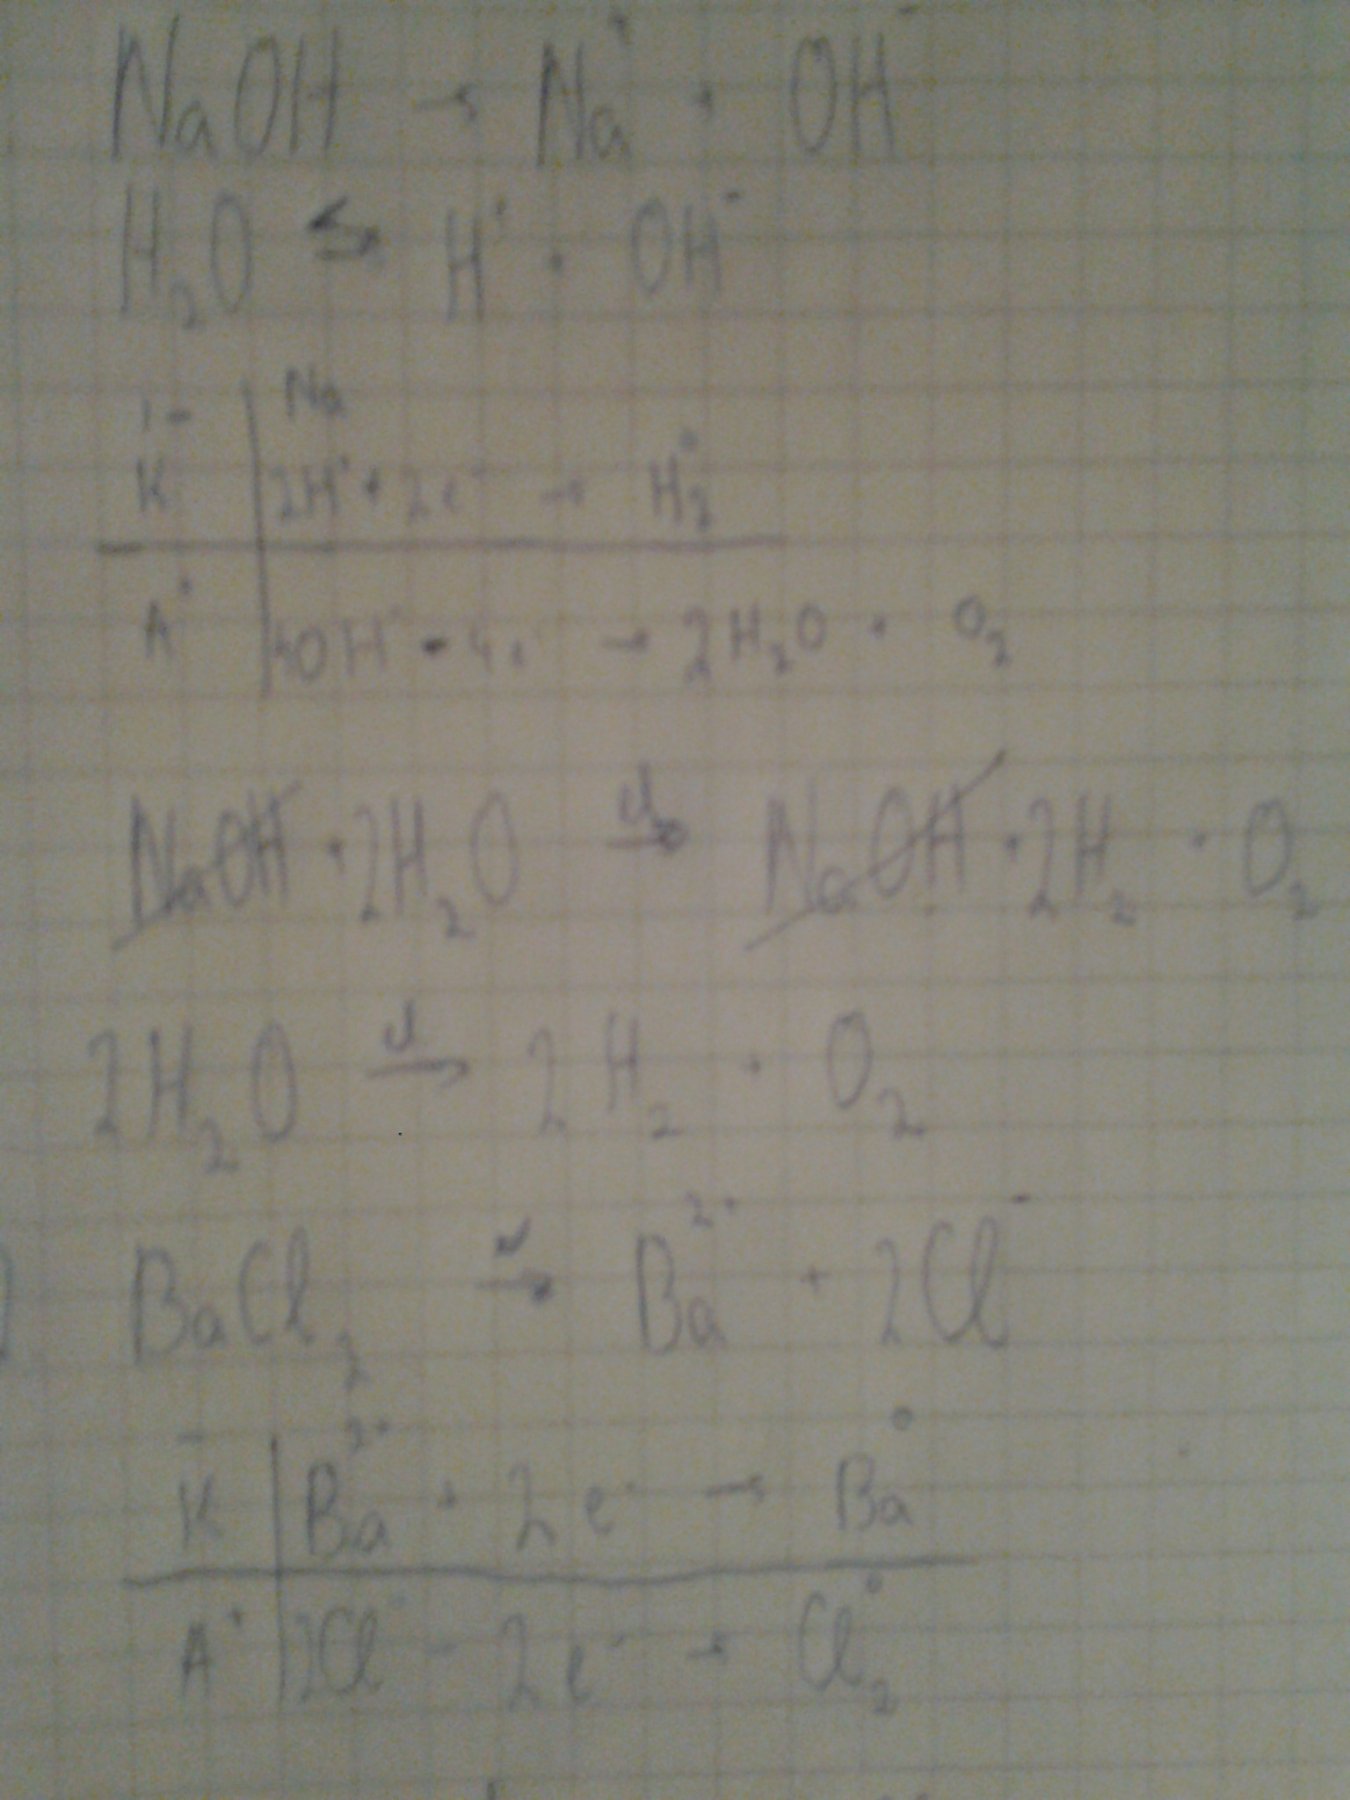 NaOH → Na⁺ + OH⁻
H₂O ⇆ H⁺ + OH⁻
Na
K⁻ | 2H⁺ + 2e⁻ → H₂⁰
A⁺ | 4OH⁻ - 4e⁻ → 2H₂O + O₂
NaOH + 2H₂O → NaOH + 2H₂ + O₂
2H₂O → 2H₂ + O₂
BaCl₂ → Ba²⁺ + 2Cl⁻
K⁻ | Ba²⁺ + 2e⁻ → Ba⁰
A⁺ | 2Cl⁻ - 2e⁻ → Cl₂⁰